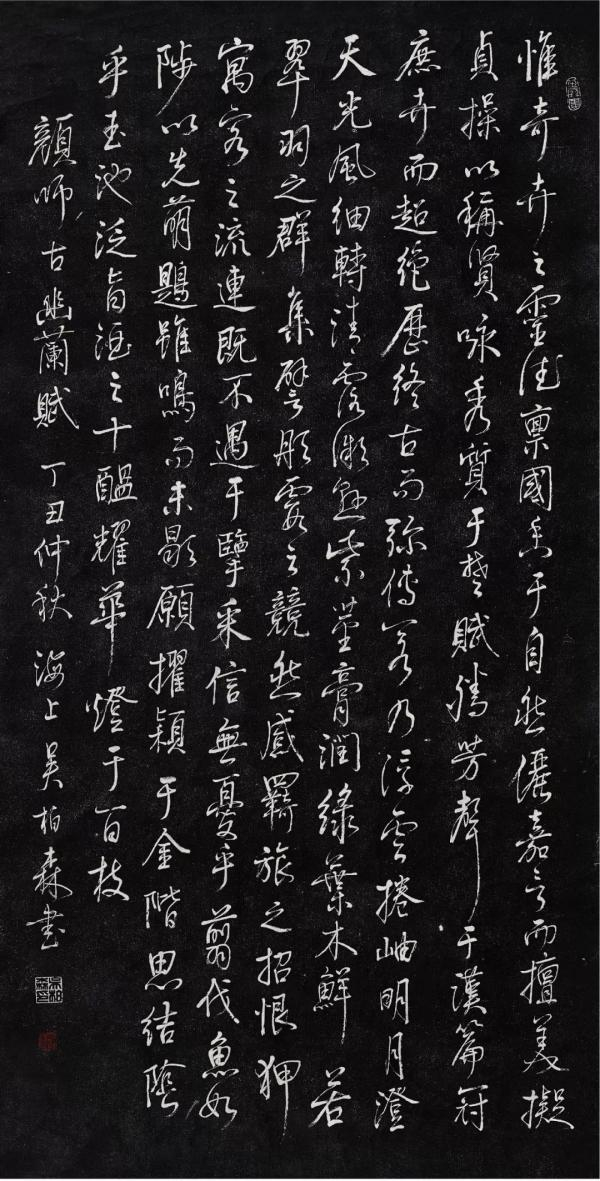 惟奇卉之靈德稟國香于自然儷嘉言而擅美擬
貞操以稱賢咏秀質于楚賦騰芳聲于漢篇冠
庶卉而超絶歷終古而弥傳若乃浮雲捲岫明月澄
天光風细轉清露微懸紫莖膏潤綠葉木鮮若
翠羽之群集譬彤霞之競然感羈旅之招恨狎
寓客之流連既不遇于擥采信無憂乎翦伐魚如
陟以先萌鶗雖鳴而未歇願擢穎于金階思結蔭
乎玉池泛旨酒之十醖耀華燈于百枝
顔師古幽蘭賦 丁丑仲秋 海上吴柏森书